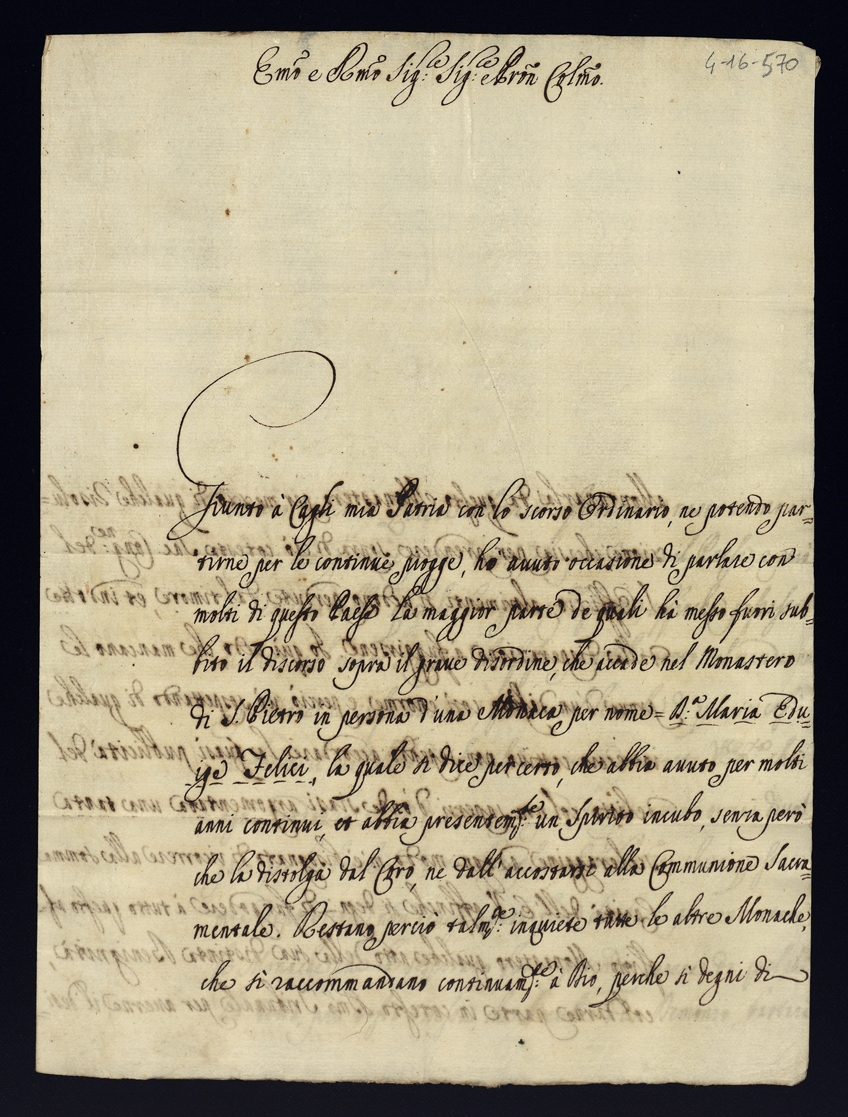 4-16-570
Emo e Rmo Sig:re Sig:re e Pron Colmo.
Giunto à Cagli mia Patria con lo scorso Ordinario, ne potendo par=
tirne per le continue piogge, ho avuto occasione di parlare con
molti di questo Paese la maggior parte de quali hà messo fuori sub=
bito il discorso sopra il grave disordine, che accade nel Monastero
di S. Pietro in persona d'una Monaca per nome = D:a Maria Edu=
ige Felici, la quale si dice per certo, che abbia avuto per molti
anni continui, et abbia presentem:te un Spirito incubo, senza però
che la distolga dal Coro, ne dall'accostarsi alla Communione Sacra=
mentale. Restano perciò talm:te inquiete tutte le altre Monache,
che si raccommandano continuam:te à Dio, perche si degni di